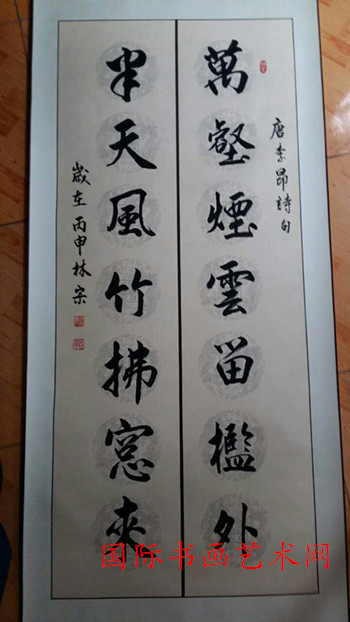 唐李昂詩句
萬壑煙雲留檻外
半天風竹拂窓來
歲在丙申林宗
国际书画艺术网